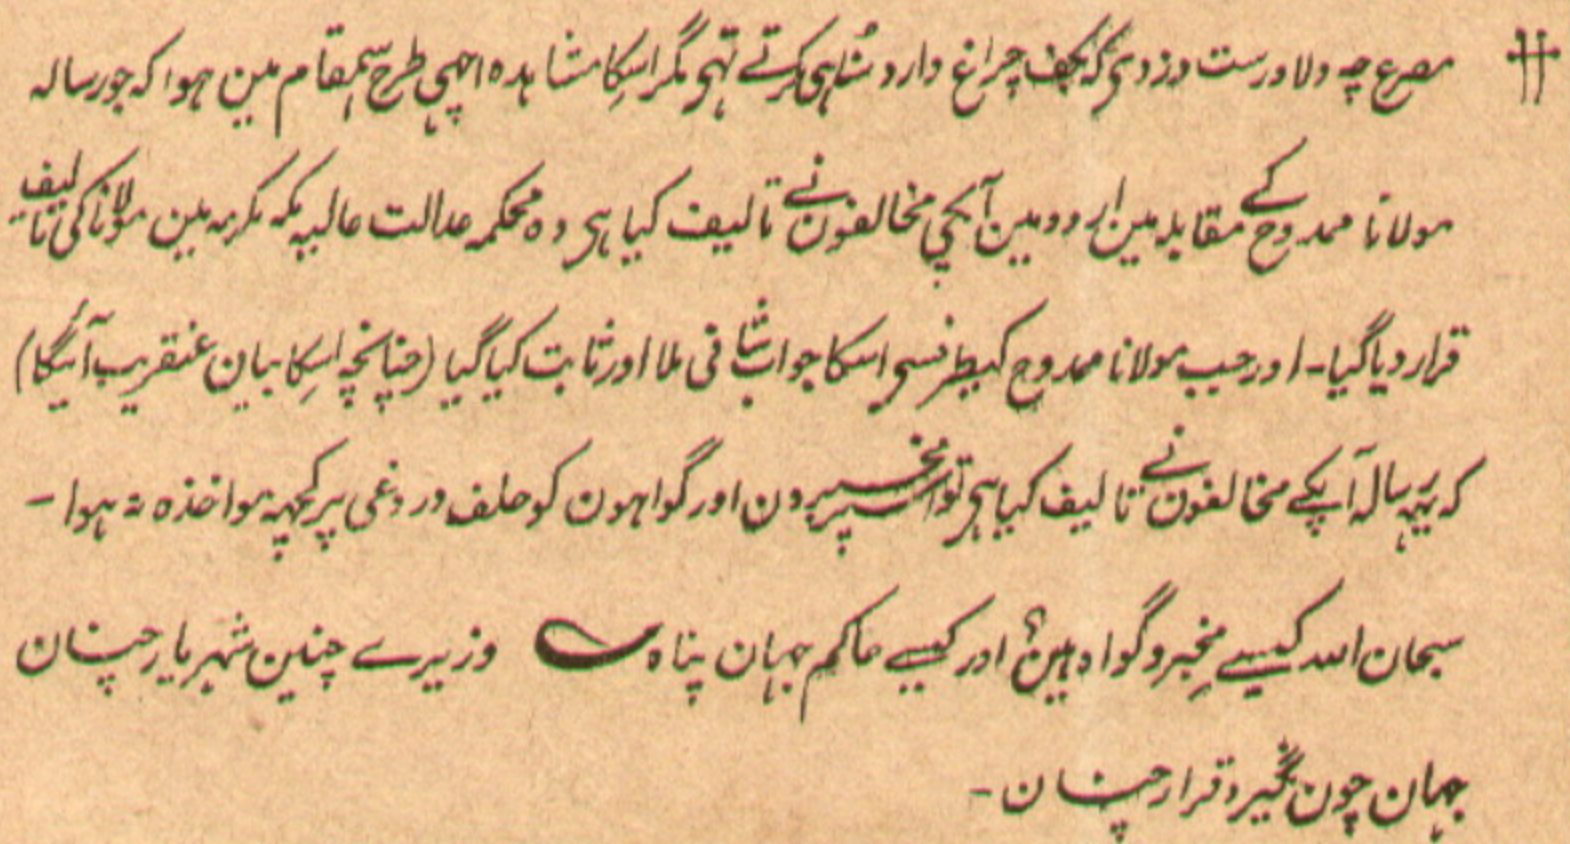 ‡ مصرع چہ دلاورست دزدی کہ بکف چراغ دارد سُنا ہی کرتے تہی مگر اسکا مشاہدہ اچہی طرح سی ہمقام مین ہوا کہ جو رسالہ
مولانا ممدوح کے مقابلہ مین اردو مین آپکی مخالفون نے تالیف کیا ہی وہ محکمہ عدالت عالیہ مکہ مکرمہ مین مولانا کی تالیف
قرار دیا گیا۔ اور جب مولانا ممدوح کیطرفسی اسکا جواب شافی ملا اور ثابت کیا گیا (چنانچہ اسکا بیان عنقریب آئیگا)
کہ یہہ رسالہ آپکے مخالفون نے تالیف کیا ہی تو ان مخبرون اور گواہون کو حلف دروغی پر کچہہ مواخذہ نہ ہوا ۔
سبحان اللہ کیسے مخبر و گواہ ہین؟ اور کیسے حاکم جہان پناہ ؎ وزیرے چنین شہریار چنان
جہان چون نگیرد قرار چنان ۔